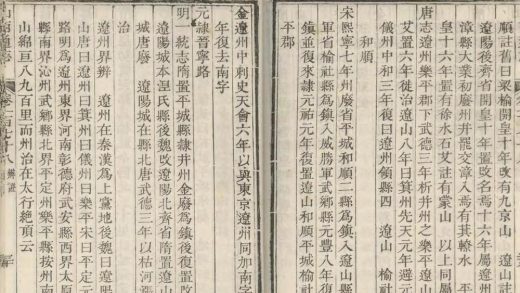 順註舊曰梁榆開皇十年改焉 遼山註
遼陽後齊省開皇十年置改名焉十六年屬遼州
漳縣大業初廢州并罷交漳入焉有其轑水 平
皇十六年置有徐水石艾註有蒙山 以上同屬
唐志遼州樂平郡下武德三年析并州之樂平遼山
艾置六年徙治遼山八年曰箕州先天元年避元
儀州中和三年復曰遼州領縣四 遼山 榆社
和順
宋熙寧七年州廢省平城和順二縣為鎮入遼山縣
軍省榆社縣為鎮入威勝軍武鄉縣元豐八年復
鎮並復來隸元祐元年復置遼山和順平城榆社
平郡
金遼州中刺史天會六年以與東京遼州同加南字
年復去南字
元隸晉寧路
明一統志隋置平城縣隸并州金廢為鎮後復改置
遼陽城本涅氏縣後魏改遼陽北齊省隋置遼
城唐廢 遼陽城在縣北唐武德三年以枯河漲
治
遼州界辨 遼州在秦漢為上黨地後魏曰遼
山唐曰遼州曰箕州曰儀州曰樂平宋曰平定元
路明為遼州東界河南彰德府武安縣西界太原
縣南界沁州武鄉縣北界平定州樂平縣按州南
山綿亘八九百里而州治在太行絕頂云